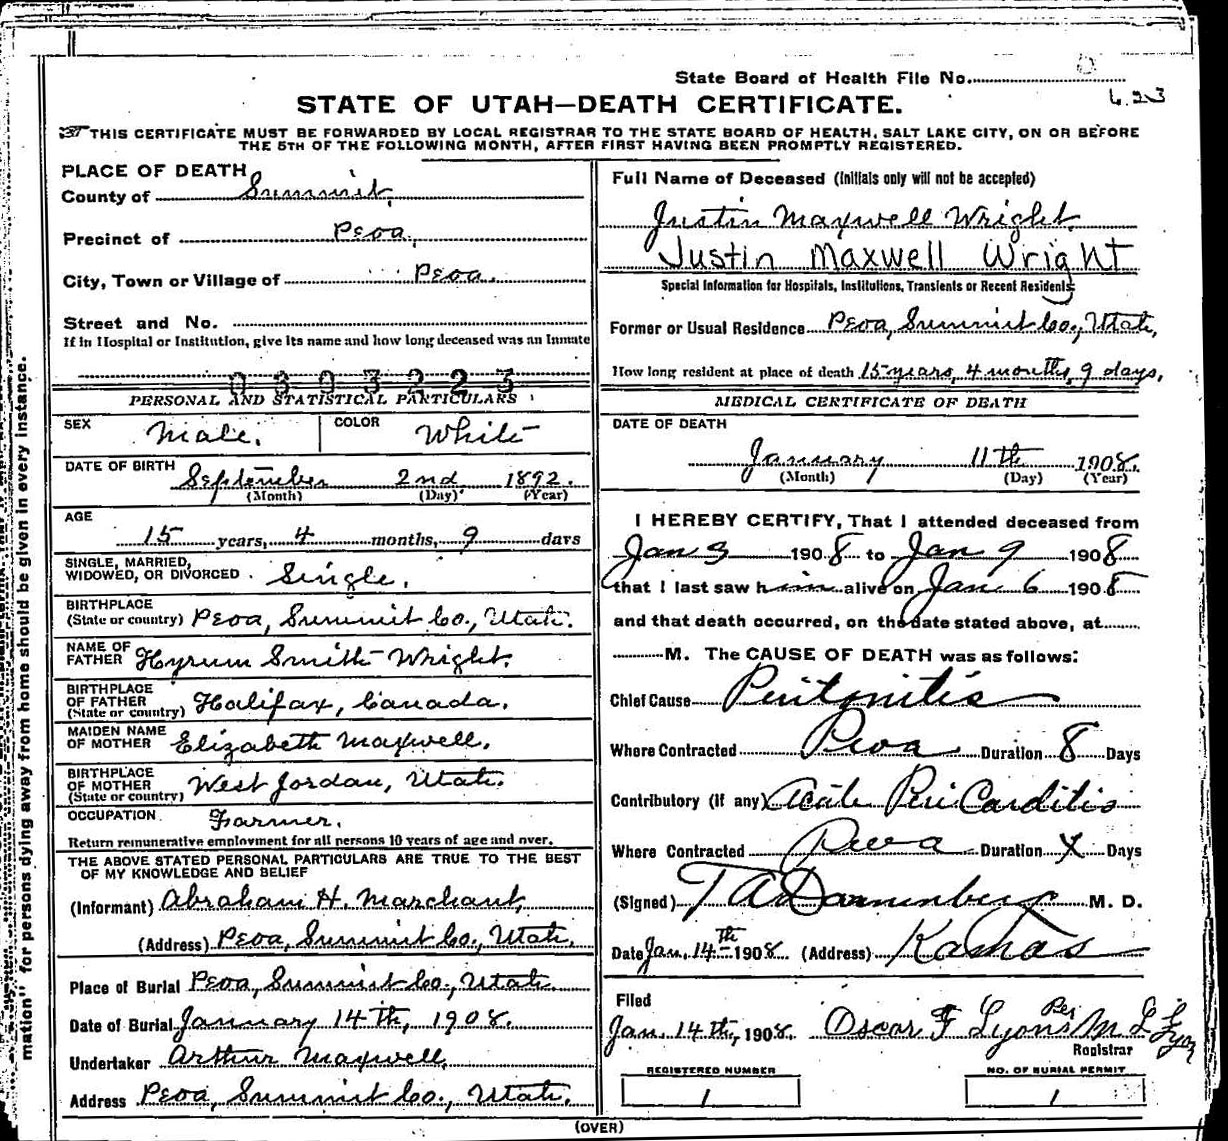 State Board of Health File No.
623
STATE OF UTAH—DEATH CERTIFICATE.
THIS CERTIFICATE MUST BE FORWARDED BY LOCAL REGISTRAR TO THE STATE BOARD OF HEALTH, SALT LAKE CITY, ON OR BEFORE
THE 5TH OF THE FOLLOWING MONTH, AFTER FIRST HAVING BEEN PROMPTLY REGISTERED.
PLACE OF DEATH
County of Summit,
Precinct of Peoa,
City, Town or Village of Peoa.
Street and No.
If in Hospital or Institution, give its name and how long deceased was an Inmate
0303223
PERSONAL AND STATISTICAL PARTICULARS
SEX Male. COLOR White
DATE OF BIRTH September 2nd 1892.
(Month) (Day) (Year)
AGE
15 years, 4 months, 9 days
SINGLE, MARRIED,
WIDOWED, OR DIVORCED Single.
BIRTHPLACE
(State or country) Peoa, Summit Co., Utah.
NAME OF
FATHER Hyrum Smith Wright.
BIRTHPLACE
OF FATHER
(State or country) Halifax, Canada.
MAIDEN NAME
OF MOTHER Elizabeth Maxwell.
BIRTHPLACE
OF MOTHER
(State or country) West Jordan, Utah.
OCCUPATION Farmer.
Return remunerative employment for all persons 10 years of age and over.
THE ABOVE STATED PERSONAL PARTICULARS ARE TRUE TO THE BEST
OF MY KNOWLEDGE AND BELIEF
(Informant) Abraham H. Marchant,
(Address) Peoa, Summit Co., Utah.
Place of Burial Peoa, Summit Co., Utah.
Date of Burial January 14th, 1908.
Undertaker Arthur Maxwell,
Address Peoa, Summit Co., Utah.
Full Name of Deceased (Initials only will not be accepted)
Justin Maxwell Wright.
Justin Maxwell Wright
Special Information for Hospitals, Institutions, Transients or Recent Residents:
Former or Usual Residence Peoa, Summit Co., Utah,
How long resident at place of death 15 years, 4 months, 9 days,
MEDICAL CERTIFICATE OF DEATH
DATE OF DEATH
January 11th 1908.
(Month) (Day) (Year)
I HEREBY CERTIFY, That I attended deceased from
Jan 3 1908 to Jan 9 1908
that I last saw him alive on Jan 6 1908
and that death occurred, on the date stated above, at
M. The CAUSE OF DEATH was as follows:
Chief Cause Peritonitis
Where Contracted Peoa Duration 8 Days
Contributory (if any) Acute Peri Carditis
Where Contracted Peoa Duration X Days
(Signed) T A Dannenberg M. D.
Date Jan. 14th 1908. (Address) Kamas
Filed
Jan. 14th, 1908. Oscar F Lyons Per M L Lyon
Registrar
REGISTERED NUMBER
1
NO. OF BURIAL PERMIT
1
(OVER)
mation" for persons dying away from home should be given in every instance.